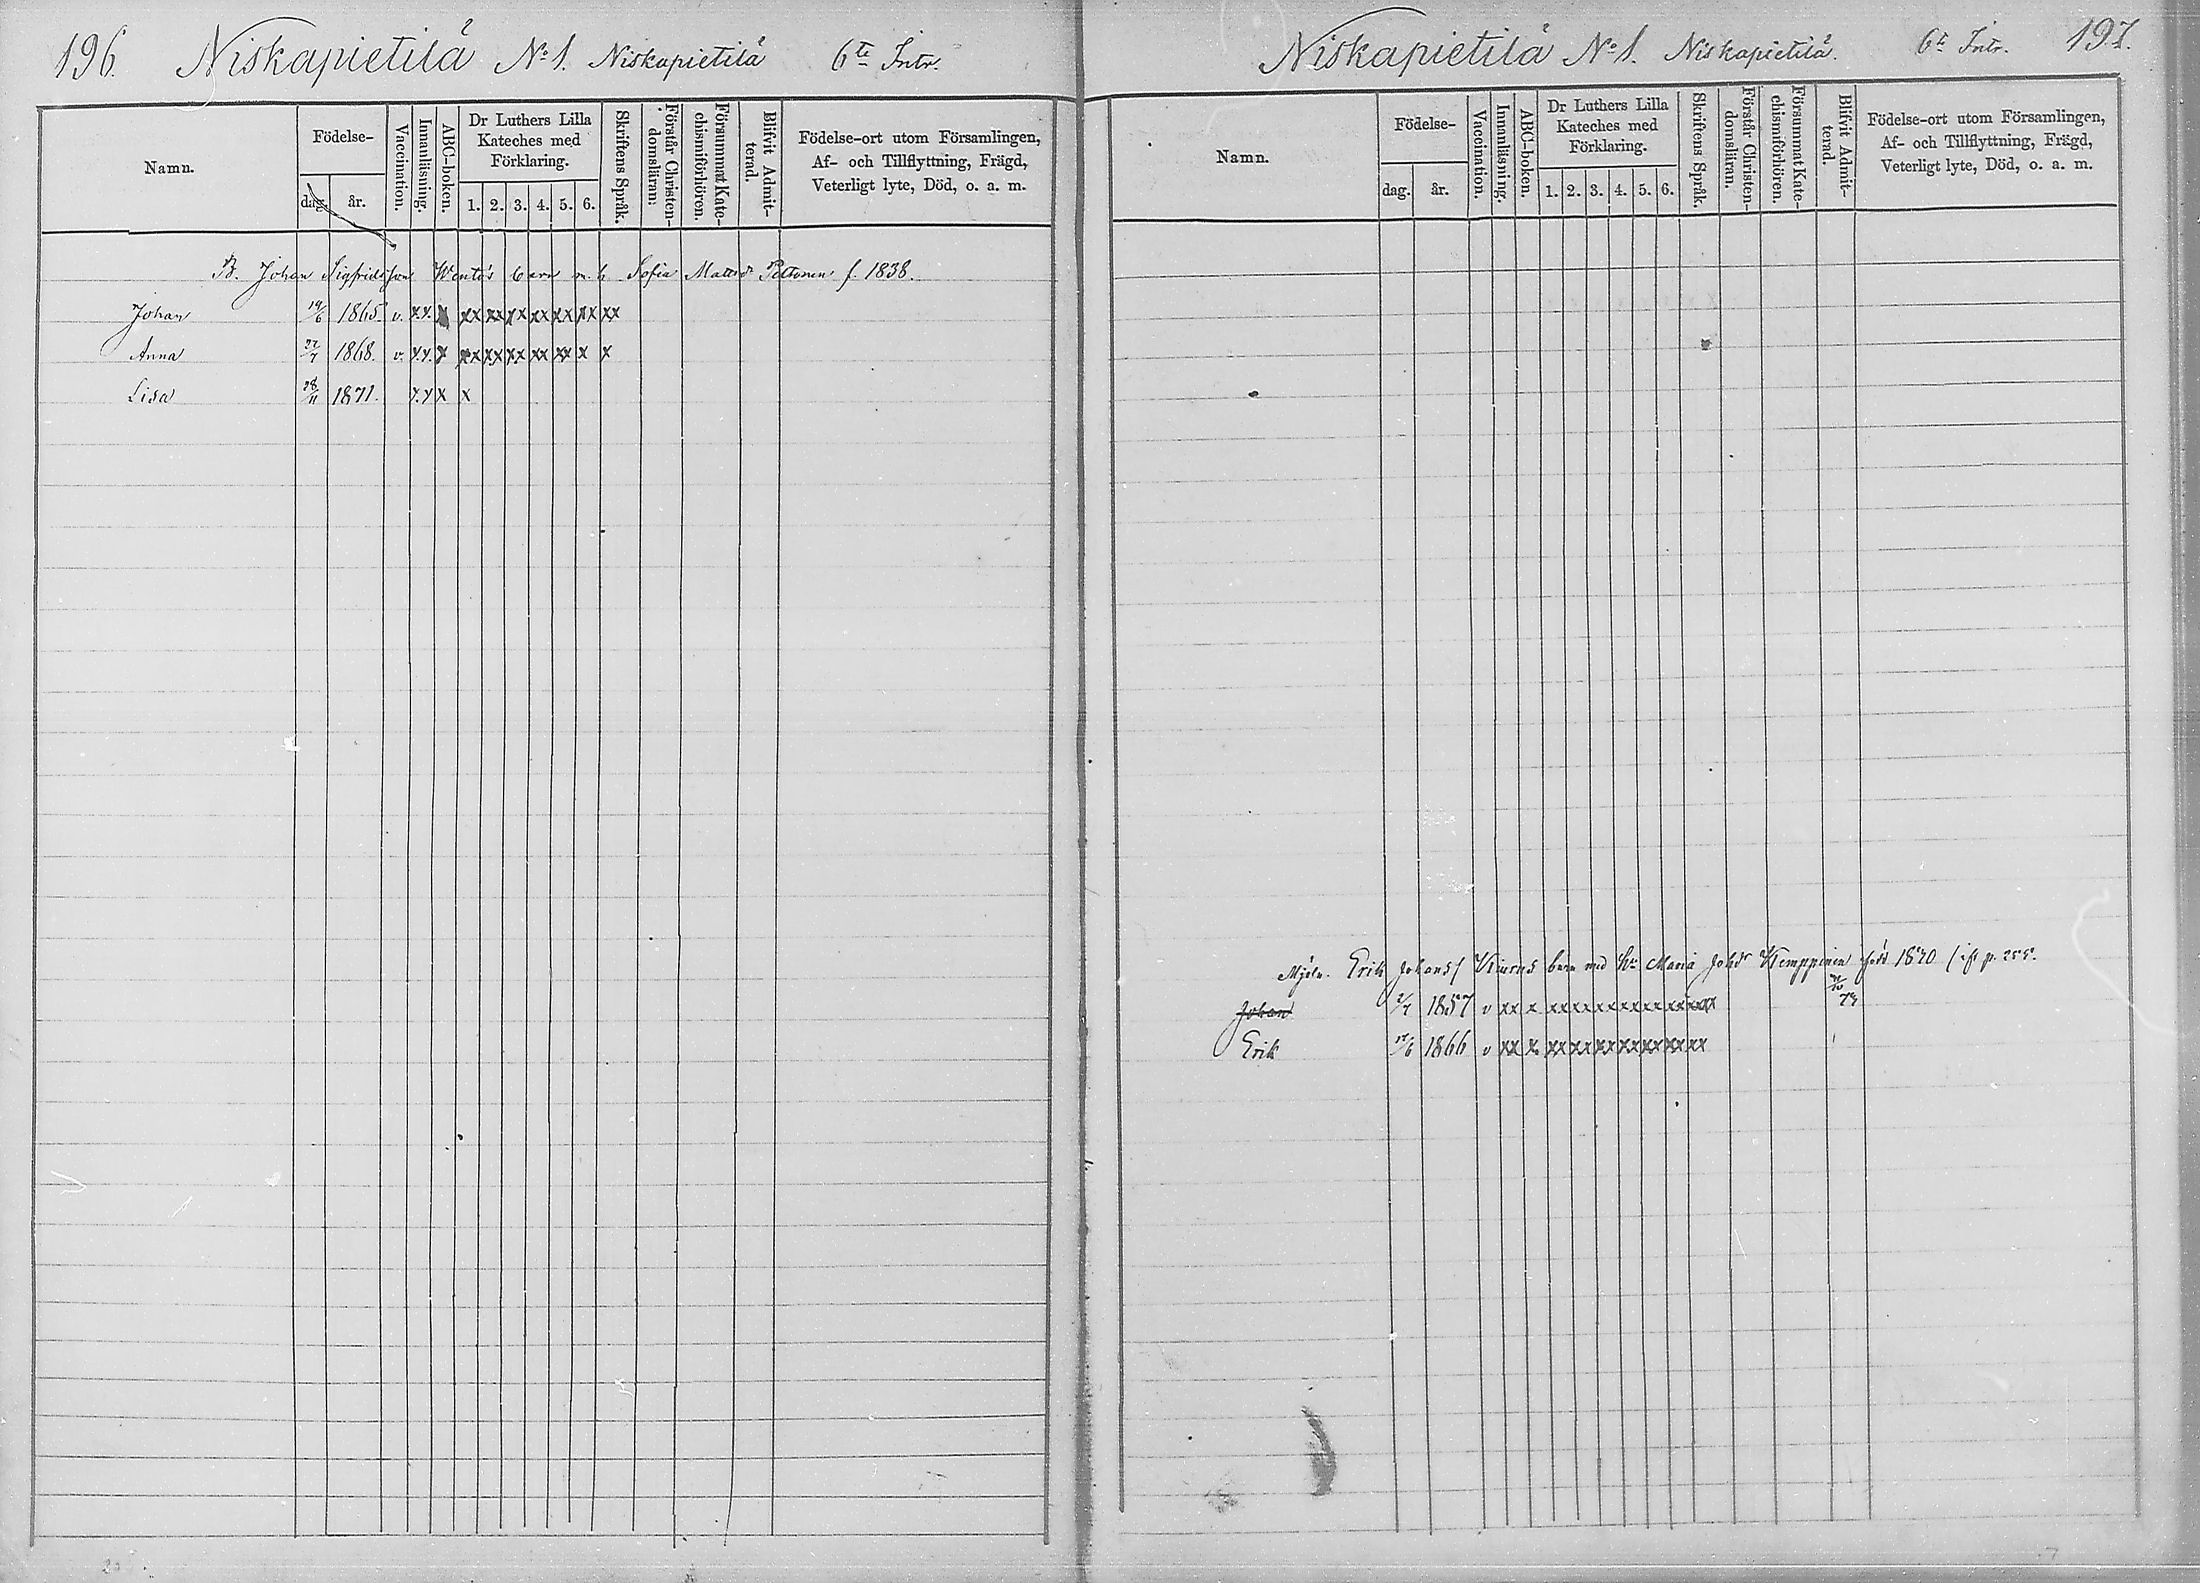 196. Niskapietilä No 1. Niskapietilä 6te Intr.
Namn.
Födelse-
dag. år.
Vaccination.
Innanläsning.
ABC-boken.
Dr Luthers Lilla
Kateches med
Förklaring.
1. 2. 3. 4. 5. 6.
Skriftens Språk.
Förstår Christen-
domsläran.
Försummat Kate-
chismiförhören.
Blifvit Admit-
terad.
Födelse-ort utom Församlingen,
Af- och Tillflyttning, Frägd,
Veterligt lyte, Död, o. a. m.
B. Johan Sigfridsson Wento's barn m. h. Sofia Mattsdr Peltonen f. 1838.
Johan 19/6 1865. v. x.x. xx xx xx xx xx xx xx
Anna 22/7 1868. v. x.x. x xx xx xx xx xx x x
Lisa 28/11 1871. x.x x x
Niskapietilä No 1. Niskapietilä. 6te Intr. 197.
Namn.
Födelse-
dag. år.
Vaccination.
Innanläsning.
ABC-boken.
Dr Luthers Lilla
Kateches med
Förklaring.
1. 2. 3. 4. 5. 6.
Skriftens Språk.
Förstår Christen-
domsläran.
Försummat Kate-
chismiförhören.
Blifvit Admit-
terad.
Födelse-ort utom Församlingen,
Af- och Tillflyttning, Frägd,
Veterligt lyte, Död, o. a. m.
Erik Johans barn med Maria Johdr Kemppinen född p. 255.
Johan 2/7 1857 v xx x xx xx xx xx xx xx xx
Erik 1866 v xx x xx xx xx xx xx xx xx